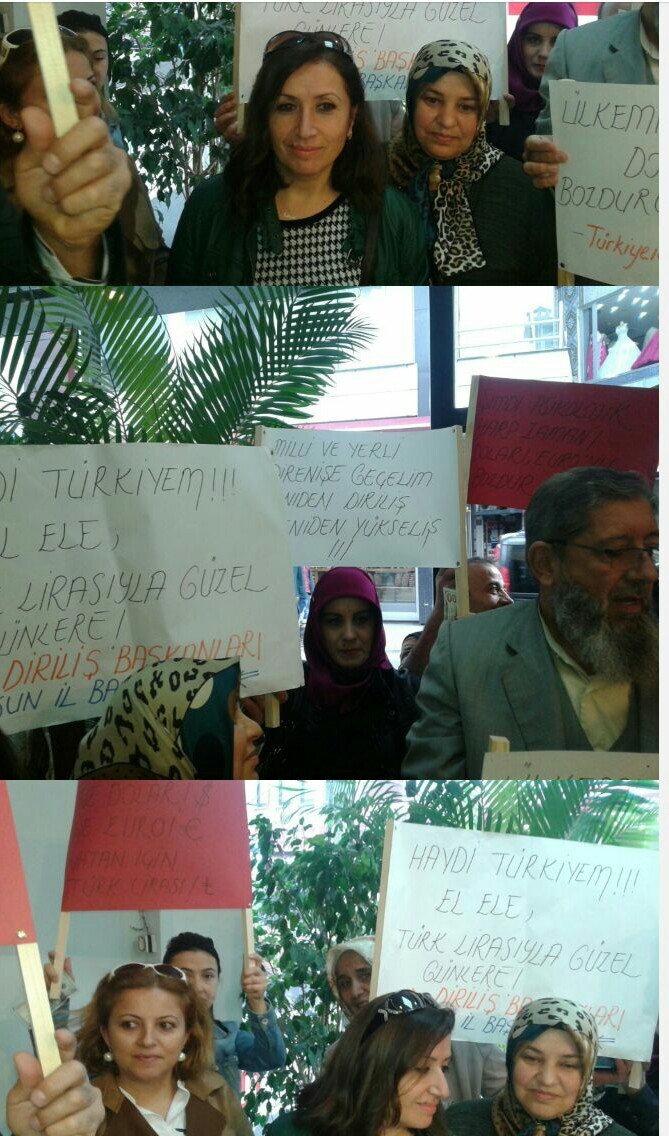 TÜRK LİRASIYLA GÜZEL
GÜNLERE!
İŞ BAŞK
BAŞKAN
ÜLKEM
DO
BOZDUR
- Türkiye
Dİ TÜRKİYEM!!!
L ELE,
LİRASIYLA GÜZEL
ÜNLERE!
DİRİLİŞ BAŞKANLARI
SUN İL BA
MİLLİ VE YERLİ
DİRENİŞE GEÇELİM
NİDEN DİRİLİŞ
ENİDEN YÜKSELİŞ
!!!
PSİKOLOJİK
HARP ZAMANI
OLARI, EURO
BOZDUR
00
DOLAR! $
E EURO! €
VATAN İÇİN
TÜRK LİRASI! ₺
HAYDİ TÜRKİYEM!!!
EL ELE,
TÜRK LİRASIYLA GÜZEL
GÜNLERE!
DİRİLİŞ BA ANLARI
N İL BAŞ